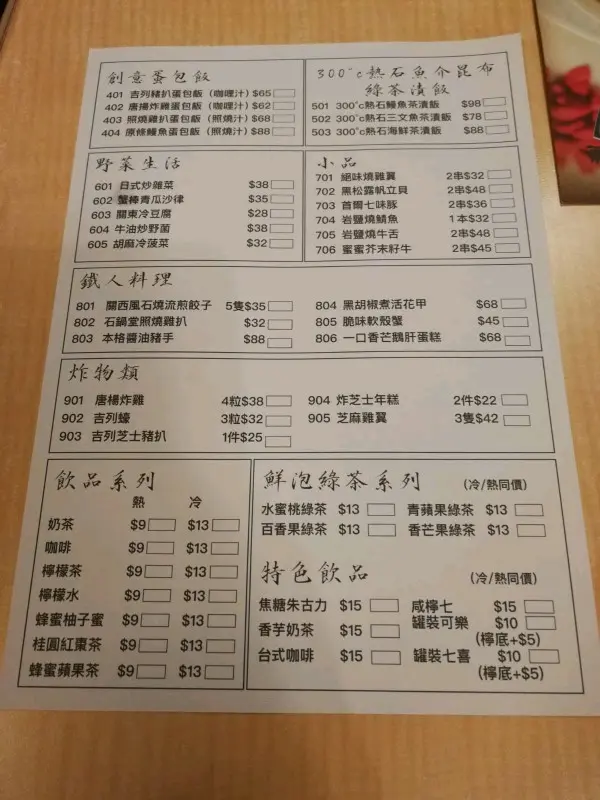 創意蛋包飯
401 吉列豬扒蛋包飯(咖哩汁) $65
402 唐揚炸雞蛋包飯(咖哩汁) $62
403 照燒雞扒蛋包飯(照燒汁) $68
404 原條鰻魚蛋包飯(照燒汁) $88
300°c熱石魚介昆布
綠茶漬飯
501 300°c熱石鰻魚茶漬飯 $98
502 300°c熱石三文魚茶漬飯 $78
503 300°c熱石海鮮茶漬飯 $88
野菜生活
601 日式炒雜菜 $38
602 蟹棒青瓜沙律 $35
603 關東冷豆腐 $28
604 牛油炒野菌 $38
605 胡麻冷菠菜 $32
小品
701 絕味燒雞翼 2串$32
702 黑松露帆立貝 2串$48
703 首爾七味豚 2串$36
704 岩鹽燒鯖魚 1本$32
705 岩鹽燒牛舌 2串$48
706 蜜蜜芥末籽牛 2串$45
鐵人料理
801 關西風石燒流煎餃子 5隻$35
802 石鍋堂照燒雞扒 $32
803 本格醬油豬手 $88
804 黑胡椒煮活花甲 $68
805 脆味軟殼蟹 $45
806 一口香芒鵝肝蛋糕 $68
炸物類
901 唐楊炸雞 4粒$38
902 吉列蠔 3粒$32
903 吉列芝士豬扒 1件$25
904 炸芝士年糕 2件$22
905 芝麻雞翼 3隻$42
飲品系列
熱 冷
奶茶 $9 $13
咖啡 $9 $13
檸檬茶 $9 $13
檸檬水 $9 $13
蜂蜜柚子蜜 $9 $13
桂圓紅棗茶 $9 $13
蜂蜜蘋果茶 $9 $13
鮮泡綠茶系列 (冷/熱同價)
水蜜桃綠茶 $13 青蘋果綠茶 $13
百香果綠茶 $13 香芒果綠茶 $13
特色飲品 (冷/熱同價)
焦糖朱古力 $15 咸檸七 $15
香芋奶茶 $15 罐裝可樂 $10
(檸底+$5)
台式咖啡 $15 罐裝七喜 $10
(檸底+$5)